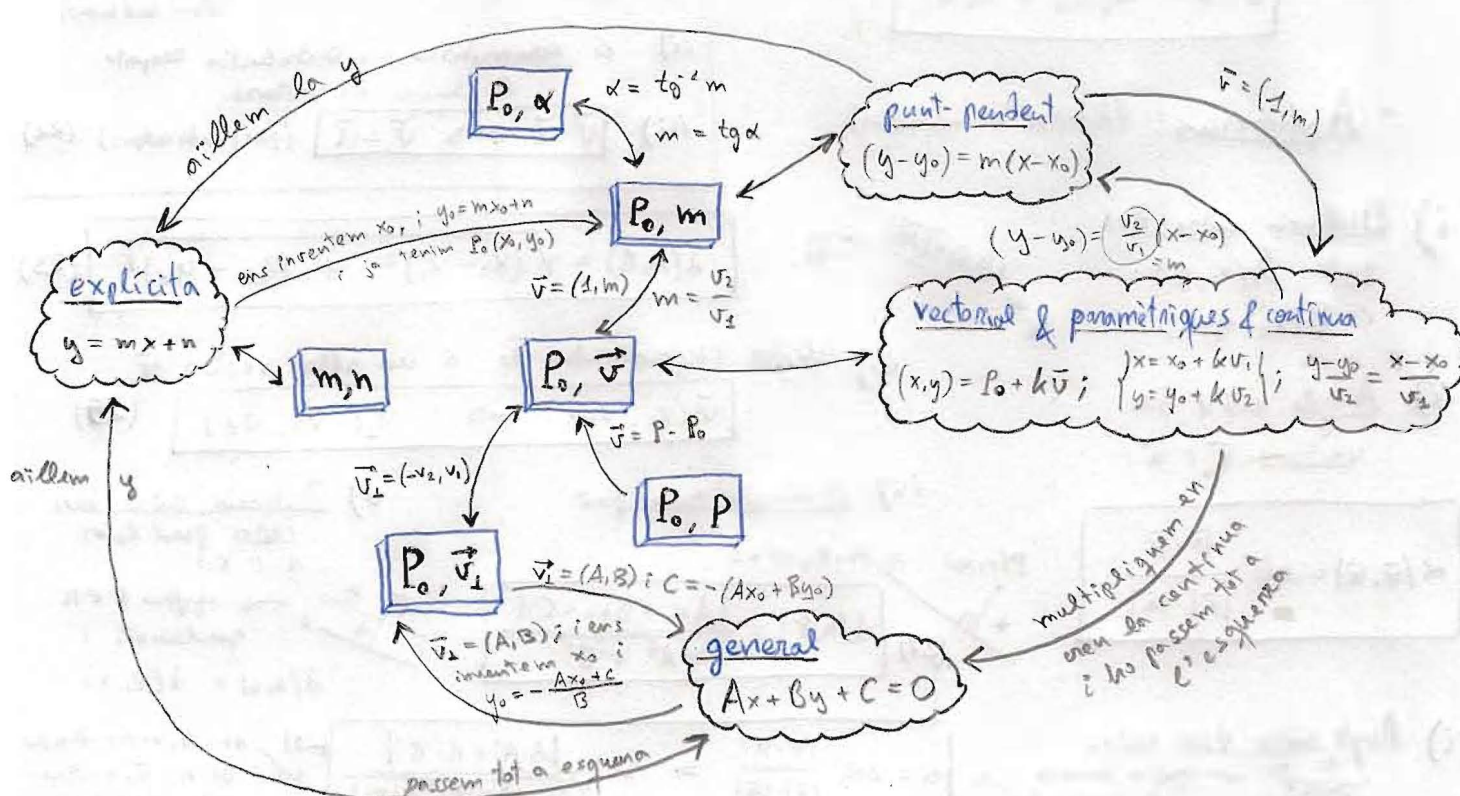 aïllem la y
P₀, α
α = tg⁻¹ m
m = tg α
punt-pendent
(y-y₀) = m(x-x₀)
v̄ = (1, m)
P₀, m
ens inventem x₀, i y₀ = mx₀+n
i ja tenim P₀(x₀, y₀)
explícita
y = mx+n
m, n
v⃗ = (1, m)
m = v₂/v₁
(y-y₀) = v₂/v₁ (x-x₀)
= m
P₀, v⃗
vectorial & paramètriques & contínua
(x,y) = P₀ + k v̄ ; {x = x₀ + k v₁ y = y₀ + k v₂} ; (y-y₀)/v₂ = (x-x₀)/v₁
v⃗ = P - P₀
P₀, P
v⃗⊥ = (-v₂, v₁)
P₀, v⃗⊥
v⃗⊥ = (A, B) i C = -(Ax₀ + By₀)
v⃗⊥ = (A, B) ; i ens
inventem x₀ i
y₀ = - (Ax₀ + C)/B
general
Ax + By + C = 0
multipliquem en
creu la contínua
i ho passem tot a
l'esquerra
aïllem y
passem tot a esquerra